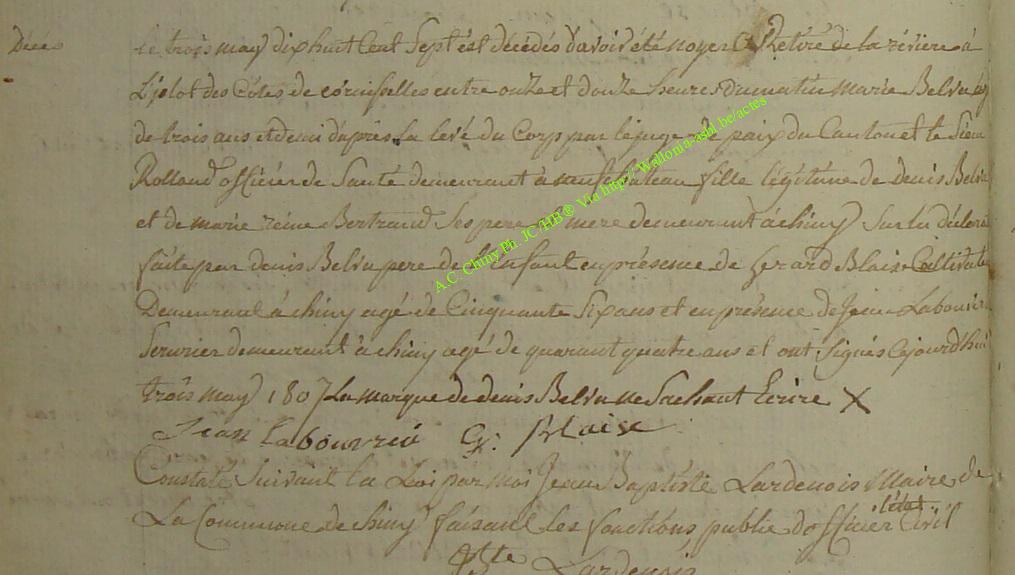 Décès
le trois may dix huit Cent Sept est décédés d'avoir été noyer & Retiré de la rivière à
L'ilot des Côtes de cornifelles entre onze et douze heures du matin Marie Belvu agé
de trois ans et demi d'après la levé du Corps par le juge de paix du Canton et le Sieur
Rolland officier de Santé demeurant à neufchateau fille légitime de denis Belvu
et de marie reine Bertrand Ses pere & mere demeurant à chiny Sur la déclara
faite par denis Belvu pere de l'Enfant en présence de Gerard Blaise Cultivate
Demeurant à chiny agé de Cinquante Six ans et en présence de Jean Labouri
Serurier demeurant à chiny agé de quarant quatre ans et ont Signés Cejourd'hui
trois may 1807 La marque de denis Belvu ne Sachant Ecrire X
Jean Labouvrie G: Blaise
Constaté Suivant la Loi par moi Jean Baptiste Lardenois Maire de
La Commune de chiny faisant les fonctions publie d'officier l'état Civil
Lardenois
A.C. Chiny Ph. JC /HB ® Via http:// Wallonia-asbl.be/actes